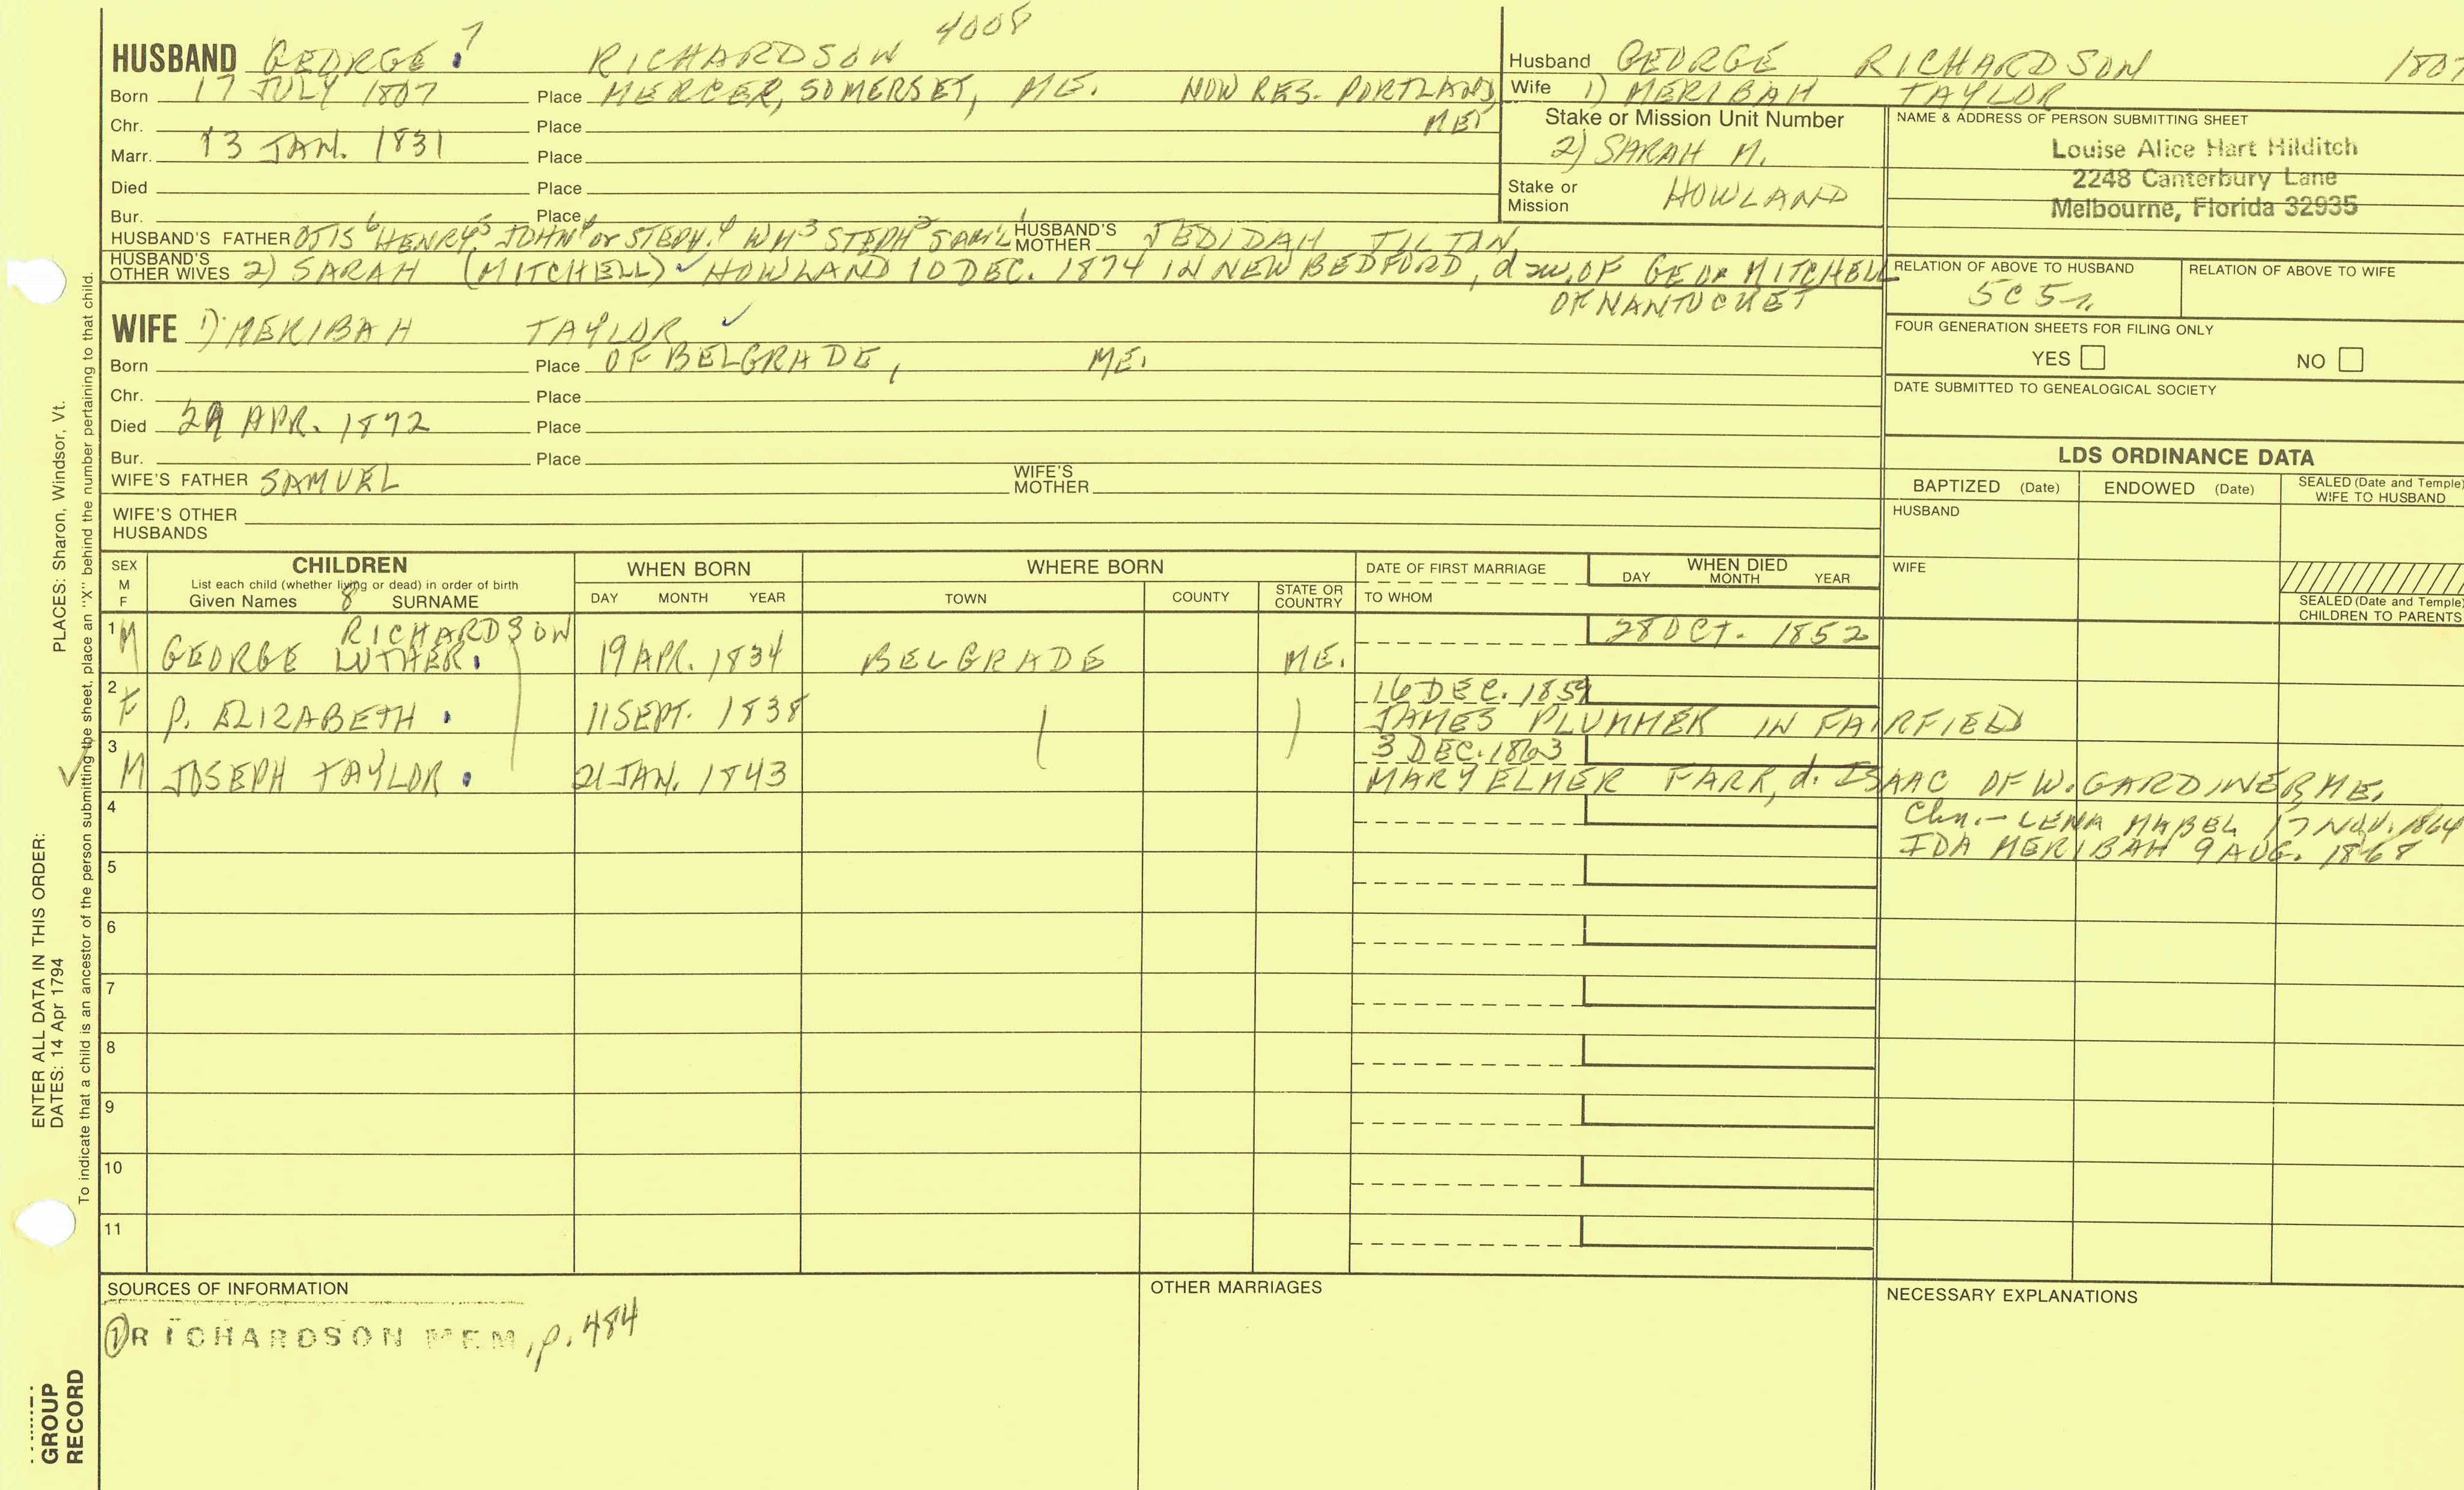 4008
HUSBAND GEORGE 7 RICHARDSON
Born 17 JULY 1807 Place MERCER, SOMERSET, ME. NOW RES. PORTLAND, ME.
Chr. Place
Marr. 13 JAN. 1831 Place
Died Place
Bur. Place
HUSBAND'S FATHER OTIS 6 HENRY 5 JOHN 4 or STEPH. 4 WM 3 STEPH 2 SAM'L 1 HUSBAND'S MOTHER JEDIDAH TILTON
HUSBAND'S OTHER WIVES 2) SARAH (MITCHELL) HOWLAND 10 DEC. 1874 IN NEW BEDFORD, OF GEO. MITCHELL
OF NANTUCKET
WIFE 1) MERIBAH TAYLOR
Born Place OF BELGRADE, ME.
Chr. Place
Died APR. 1872 Place
Bur. Place
WIFE'S FATHER SAMUEL WIFE'S MOTHER
WIFE'S OTHER HUSBANDS
Husband GEORGE RICHARDSON 1807
Wife 1) MERIBAH TAYLOR
Stake or Mission Unit Number
2) SARAH M.
Stake or Mission HOWLAND
NAME & ADDRESS OF PERSON SUBMITTING SHEET
Louise Alice Hart Hilditch
2248 Canterbury Lane
Melbourne, Florida 32935
RELATION OF ABOVE TO HUSBAND RELATION OF ABOVE TO WIFE
5C 5r.
FOUR GENERATION SHEETS FOR FILING ONLY
YES NO
DATE SUBMITTED TO GENEALOGICAL SOCIETY
LDS ORDINANCE DATA
BAPTIZED (Date) ENDOWED (Date) SEALED (Date and Temple) WIFE TO HUSBAND
HUSBAND
WIFE
SEALED (Date and Temple) CHILDREN TO PARENTS
SEX M F
CHILDREN
List each child (whether living or dead) in order of birth
Given Names 8 SURNAME
WHEN BORN
DAY MONTH YEAR
WHERE BORN
TOWN COUNTY STATE OR COUNTRY
DATE OF FIRST MARRIAGE
TO WHOM
WHEN DIED
DAY MONTH YEAR
1 M GEORGE LUTHER RICHARDSON 19 APR. 1834 BELGRADE ME. 28 OCT. 1852
2 F P. ELIZABETH 11 SEPT. 1838 16 DEC. 1859
JAMES PLUMMER IN FAIRFIELD
3 M JOSEPH TAYLOR 21 JAN. 1843 3 DEC. 1863
MARY ELMER FARR, d. ISAAC OF W. GARDINER, ME.
Chn.- LENA MABEL 17 NOV. 1864
IDA MERIBAH 9 AUG. 1868
4
5
6
7
8
9
10
11
SOURCES OF INFORMATION
① RICHARDSON MEM, p. 484
OTHER MARRIAGES
NECESSARY EXPLANATIONS
PLACES: Sharon, Windsor, Vt.
To indicate that a child is an ancestor of the person submitting the sheet, place an "X" behind the number pertaining to that child.
ENTER ALL DATA IN THIS ORDER:
DATES: 14 Apr 1794
GROUP
RECORD